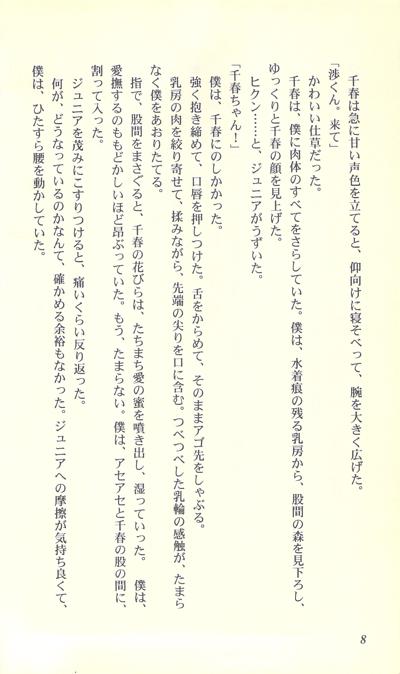 千春は急に甘い声色を立てると、仰向けに寝そべって、腕を大きく広げた。
「渉くん。来て」
かわいい仕草だった。
千春は、僕に肉体のすべてをさらしていた。僕は、水着痕の残る乳房から、股間の森を見下ろし、
ゆっくりと千春の顔を見上げた。
ヒクン……と、ジュニアがうずいた。
「千春ちゃん！」
僕は、千春にのしかかった。
強く抱き締めて、口唇を押しつけた。舌をからめて、そのままアゴ先をしゃぶる。
乳房の肉を絞り寄せて、揉みながら、先端の尖りを口に含む。つべつべした乳輪の感触が、たまら
なく僕をあおりたてる。
指で、股間をまさぐると、千春の花びらは、たちまち愛の蜜を噴き出し、湿っていった。　僕は、
愛撫するのももどかしいほど昂ぶっていた。もう、たまらない。僕は、アセアセと千春の股の間に、
割って入った。
ジュニアを茂みにこすりつけると、痛いくらい反り返った。
何が、どうなっているのかなんて、確かめる余裕もなかった。ジュニアへの摩擦が気持ち良くて、
僕は、ひたすら腰を動かしていた。
8